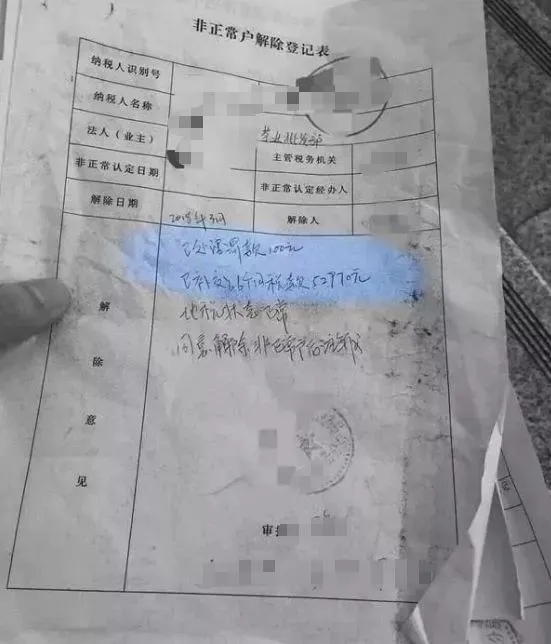 非正常户解除登记表
纳税人识别号
纳税人名称
法人（业主） 茶业批发部
非正常认定日期 主管税务机关
解除日期 非正常认定经办人
2018年3月 解除人
已处理罚款100元
已补交 税款52970元
状态正常
同意解除非正常户后注销
解除意见
审批